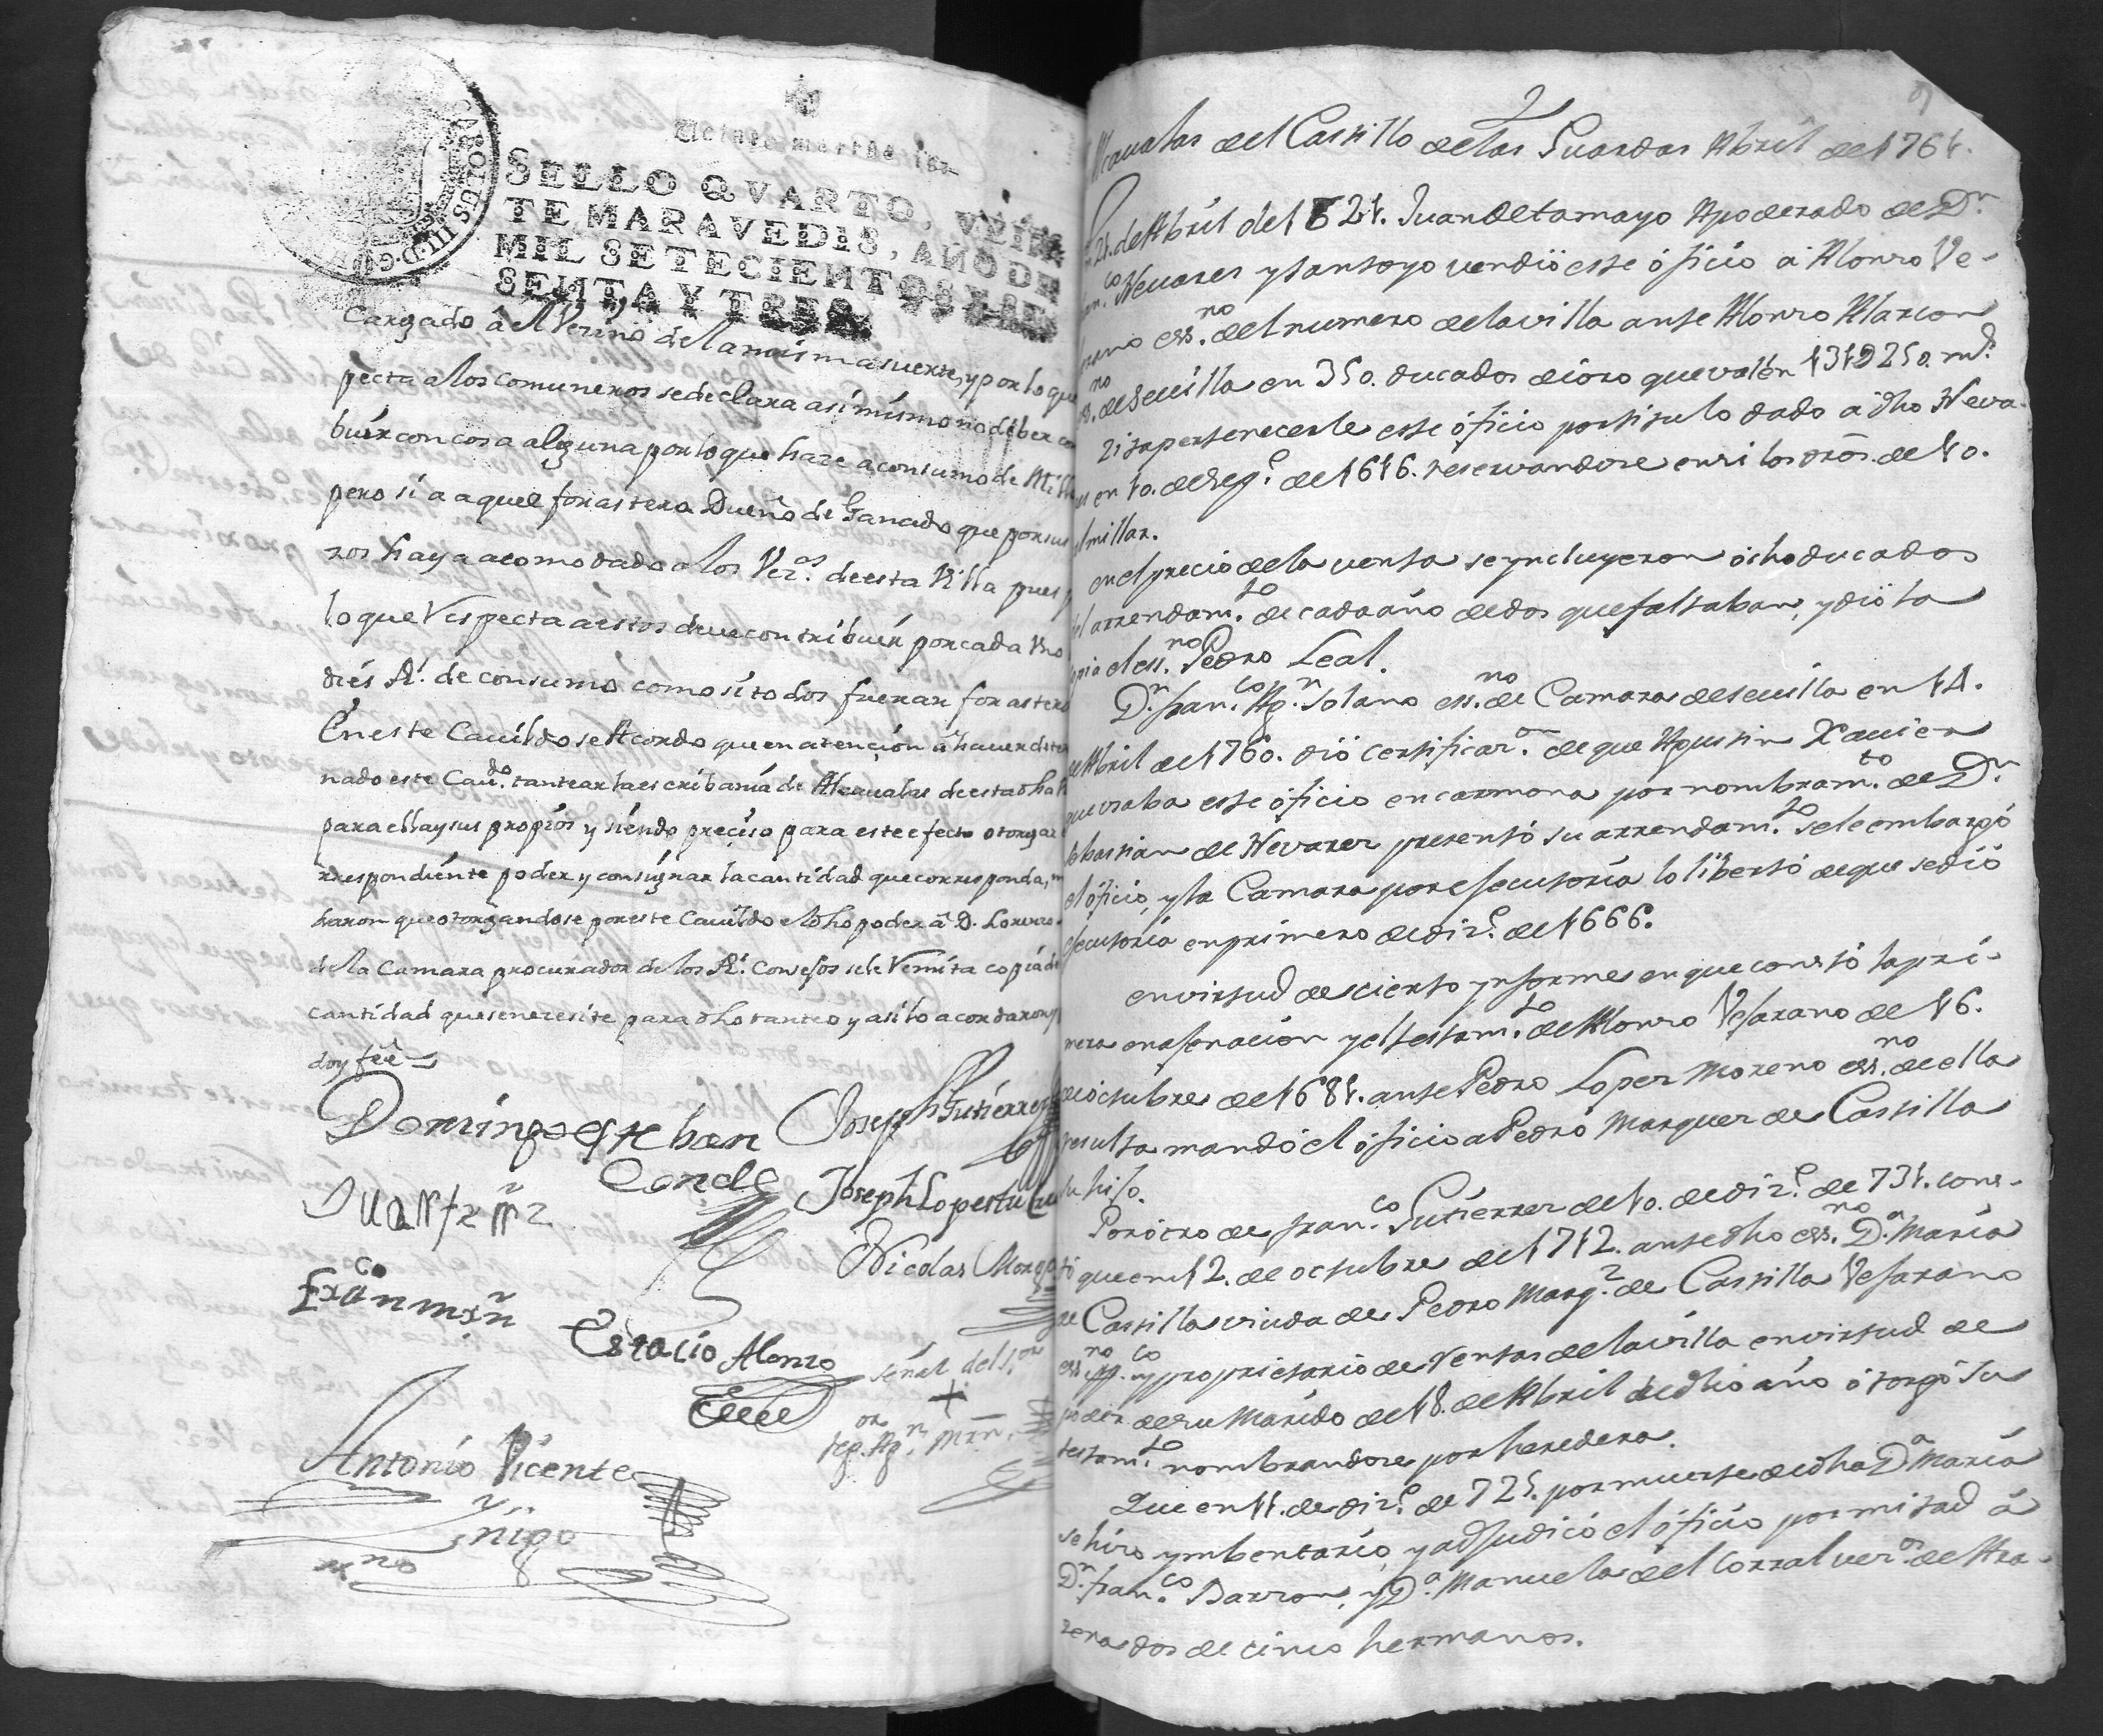 Veinte maravedis
SELLO QVARTO, VEIN
TE MARAVEDIS, AÑO DE
MIL SETECIENTOS Y SE
SENTA Y TRES.
CAROLUS III D G
Cargado â el Vezino de la misma suerte, y por lo que
pecta a los comuneros se declara asímísmo no deber con
buír con cosa alguna por lo que haze a consumo de
pero sí a aquel forastero Dueño de Ganado que por sus
ros haya acomodado a los Vez.os de esta Villa pues
lo que Respecta â estos deue contribuír por cada Vno
diés R.s de consumo como si todos fueran forastero
En este Cauíldo se Acordo que en atención â hauer deter
nado este Cau.do tantear la escribanía de Alcaualas de esta dha
para ella y sus propíos y siendo preciso para este efecto otorgar
rrespondíente poder y consígnar la cantidad que corresponda,
haron que otorgandose por este Cauíldo el dho poder â D. Lorenzo
de la Camara procurador de los R.s Consejos se le Remíta copía de
cantidad que se neresite para dho tanteo y asi lo acordaron y
doy feê
Domingo esteban
Conde
Joseph Gutierrez
Juan frz mrz
Joseph Lopez
Nicolas
Franco mrn
Estacio Alonso
señal del S.or
+
reg.or Ag.n Mrn.
Antonio Vicente
Yñigo
ess.no
2
Alcaualas del Castillo delas Guardas Abril de 1764.
en 21. de Abril de 1621. Juan de tamayo Apoderado de D.n
fran.co Nevares y santoyo vendiò este ôficio â Alonso Ve-
jarano ess.no del numero dela villa ante Alonso Alarcon
ess.no de Sevilla en 350. ducados de ôro que valen 131D250. m.s
Zita pertenecerle este ôficio por titulo dado â dho Neva-
res en 10. de Sep.e de 1616. reservandose en si los dros. de 10.
al millar.
en el precio dela venta se yncluyeron ôcho ducados
del arrendam.to de cada año de dos que faltaban, y diò la
copia el ess.no Pedro Leal.
D.n fran.co Ag.n Solano ess.no de Camara de Sevilla en 14.
de Abril de 1760. diò certificaz.on de que Agustin Xavier
que vsaba este ôficio en carmona por nombram.to de D.n
Sebastian de Nevares presentó su arrendam.to se le embargó
el ôficio, y la Camara por ejecutoría lo libertó de que se diò
ejecutoría en primero de diz.e de 1666.
en virtud de cierto ynforme en que constó la pri-
mera enajenacion y el testam.to de Alonso Vejarano de 16.
de octubre de 1681. ante Pedro Lopez Moreno ess.no de ella
resulta mandó el ôficio a Pedro Marquez de Castilla
su hijo.
Por ôtro de fran.co Gutierrez de 10. de diz.e de 731. cons-
tó que en 12. de octubre de 1712. ante dho ess.no D.a Maria
de Castilla viuda de Pedro Marq.z de Castilla Vejarano
ess.no pp.co y proprietario de Rentas dela villa en virtud de
poder de su Marido de 18. de Abril de dho año ôtorgó su
testam.to nombrandose por heredera.
Que en 11. de diz.e de 725. por muerte de dha D.a Maria
se hizo ymbentario, y adjudicó el ôficio por mitad â
D.n fran.co Barron, y D.a Manuela del Corral vez.os de Ara-
zena dos de cinco hermanos.